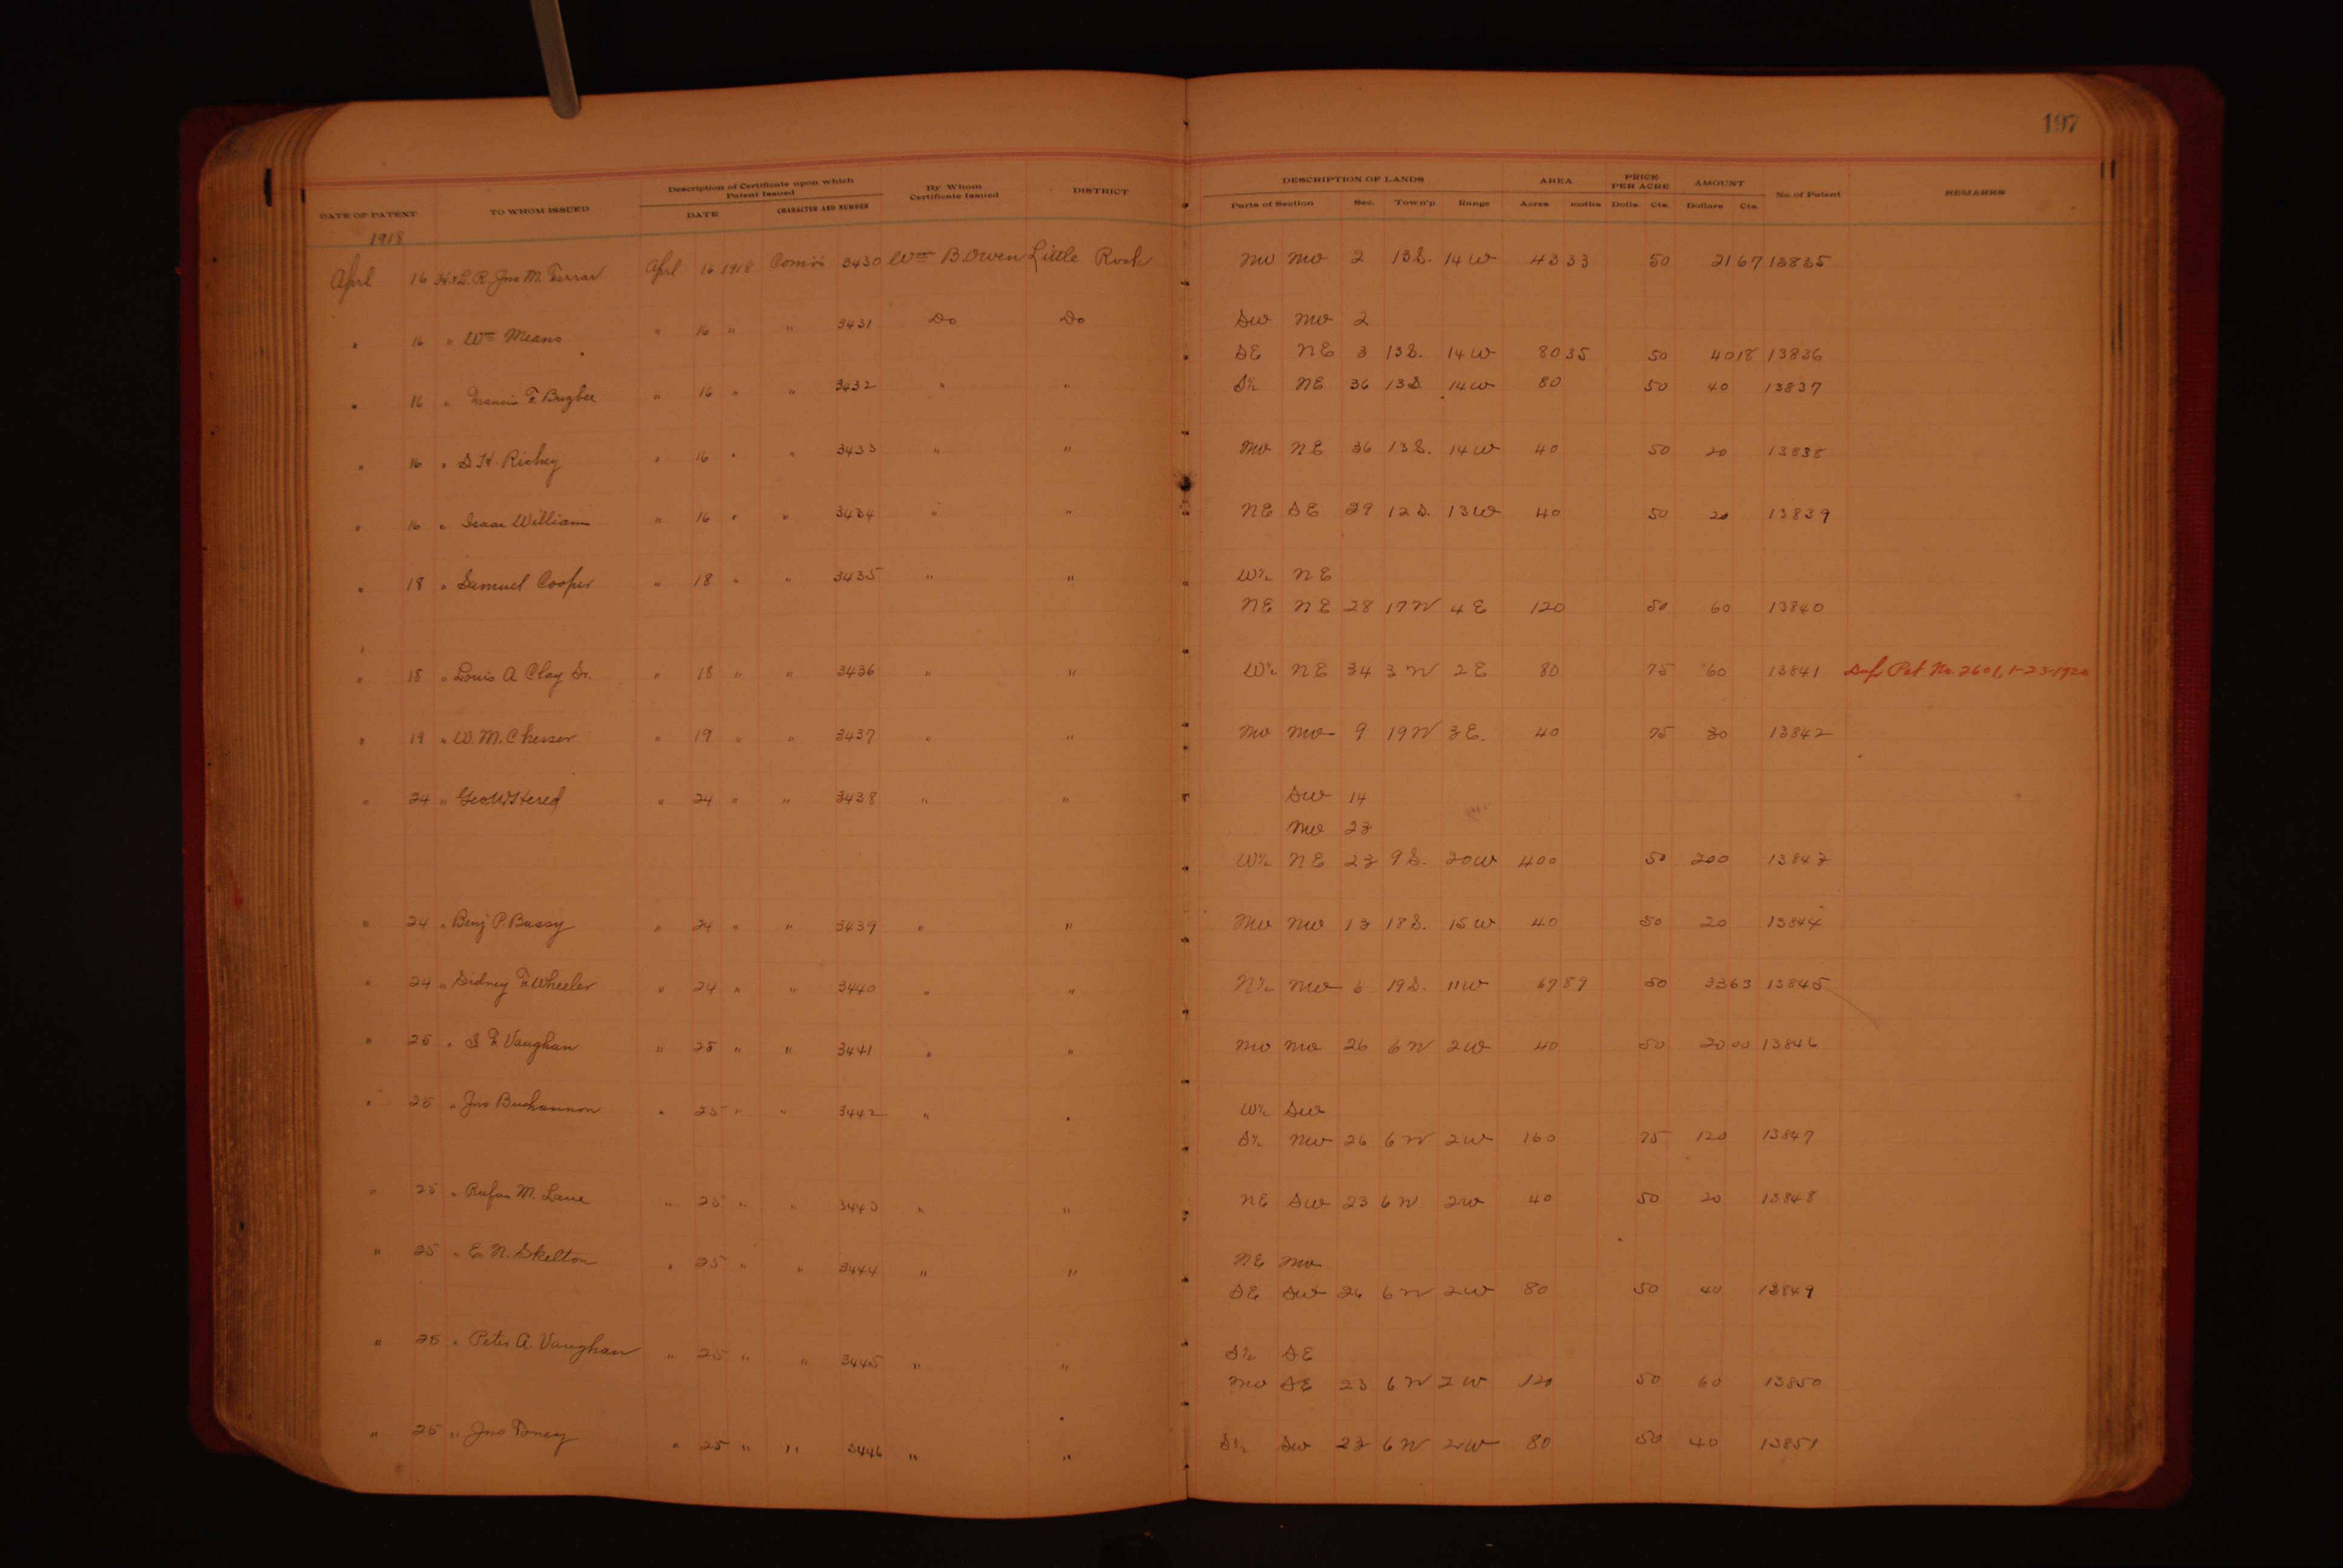 197
DATE OF PATENT TO WHOM ISSUED Description of Certificate upon which Patent Issued DATE CHARACTER AND NUMBER By Whom Certificate Issued DISTRICT DESCRIPTION OF LANDS Parts of Section Sec. Town'p Range AREA Acres PRICE PER ACRE Dolls. Cts. AMOUNT Dollars Cts. No. of Patent REMARKS
1918
Aprl 16 Jno M. Farrar Aprl 16 1918 3430 Wm B. Owen Little Rock NW NW 2 13 S. 14 W 43 33 50 21 67 13835
" 16 " Wm Means " 16 " " 3431 Do Do SW NW 2
SE NE 3 13 S. 14 W 80 35 50 40 18 13836
" 16 " Francis F. Bugbee " 16 " " 3432 " " S½ NE 36 13 S. 14 W 80 50 40 13837
" 16 " S. H. Richey " 16 " " 3433 " " NW NE 36 13 S. 14 W 40 50 20 13838
" 16 " Isaac William " 16 " " 3434 " " NE SE 29 12 S. 13 W 40 50 20 13839
" 18 " Samuel Cooper " 18 " " 3435 " " W½ NE
NE NE 28 17 N 4 E 120 50 60 13840
" 18 " Louis A Clay Sr. " 18 " " 3436 " " W½ NE 34 3 N 2 E 80 75 60 13841 Pat No. 2601, 1-23-1920
" 19 " W. M. Chesser " 19 " " 3437 " " NW NW 9 19 N 3 E. 40 75 30 13842
" 24 " Geo W Hered " 24 " " 3438 " " SW 14
NW 23
W½ NE 23 9 S. 20 W 400 50 200 13843
" 24 " Benj P. Bussy " 24 " " 3439 " " NW NW 13 18 S. 15 W 40 50 20 13844
" 24 " Sidney F. Wheeler " 24 " " 3440 " " N½ NW 6 19 S. 11 W 67 87 50 33 63 13845
" 25 " S. F. Vaughan " 25 " " 3441 " " NW NW 26 6 N 2 W 40 50 20 00 13846
" 25 " Jno Buchannon " 25 " " 3442 " " W½ SW
S½ NW 26 6 N 2 W 160 75 120 13847
" 25 " Rufus M. Lane " 25 " " 3443 " " NE SW 23 6 N 2 W 40 50 20 13848
" 25 " E. N. Skelton " 25 " " 3444 " " NE NW
SE SW 26 6 N 2 W 80 50 40 13849
" 25 " Peter A. Vaughan " 25 " " 3445 " " S½ SE
NW SE 23 6 N 2 W 120 50 60 13850
" 25 " Jno Toney " 25 " " 3446 " " S½ SW 23 6 N 2 W 80 50 40 13851